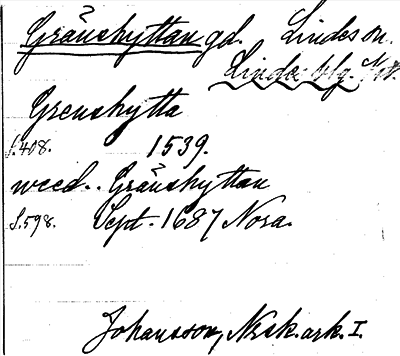 Gränshyttan gd. Lindes sn.
Lindes blg. 
Grenshytta
s. 408. 1539.
weed.. Gränshyttan
S. 598. Sept. 1687 Nora.
Johansson, Norsk. ark. I.